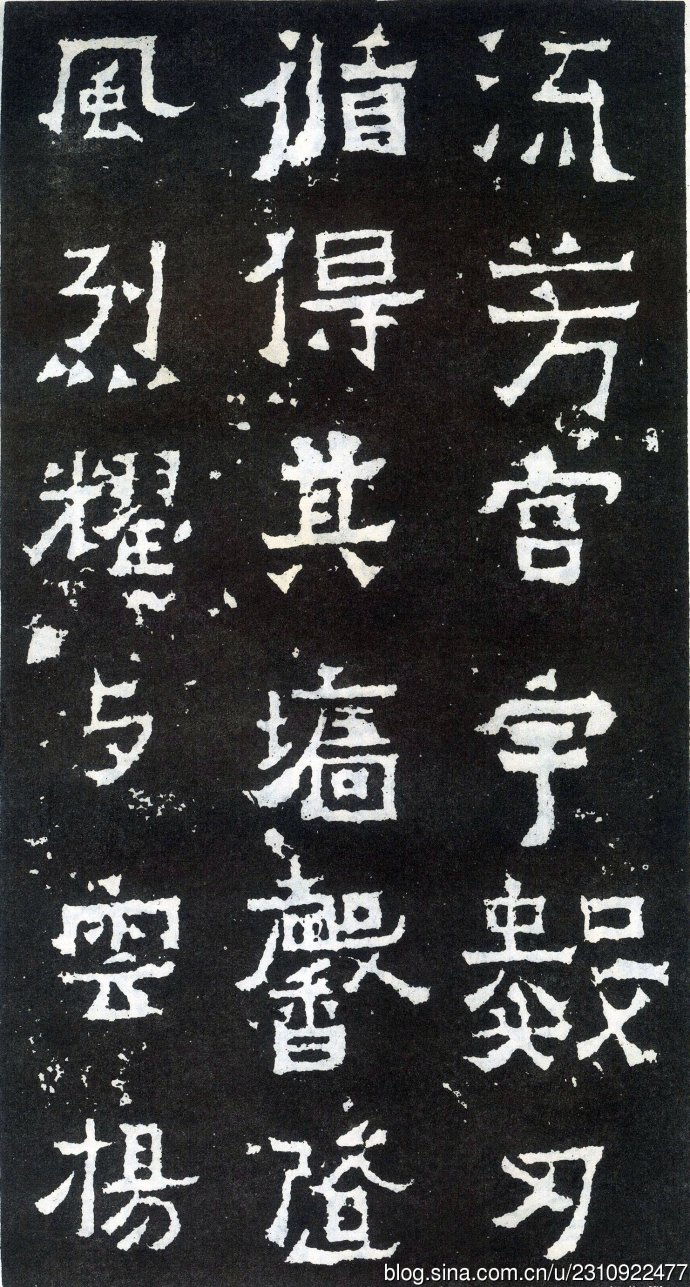 流芳宮宇數刃
循得其墻馨隨
風烈耀与雲楊
blog.sina.com.cn/u/2310922477